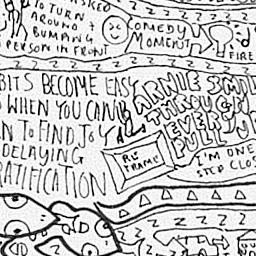 TO TURN
AROUND +
BUMPING
PERSON IN FRONT
COMEDY
MOMENT
FIRE
Z Z Z Z Z Z Z
BITS BECOME EASY
WHEN YOU CAN
TO FIND JOY
DELAYING
GRATIFICATION
ARNIE SMILE
THROUGH
EVERY
PULL UP
RE
FRAME
I'M ONE
STEP CLOS
Z Z Z Z Z Z Z